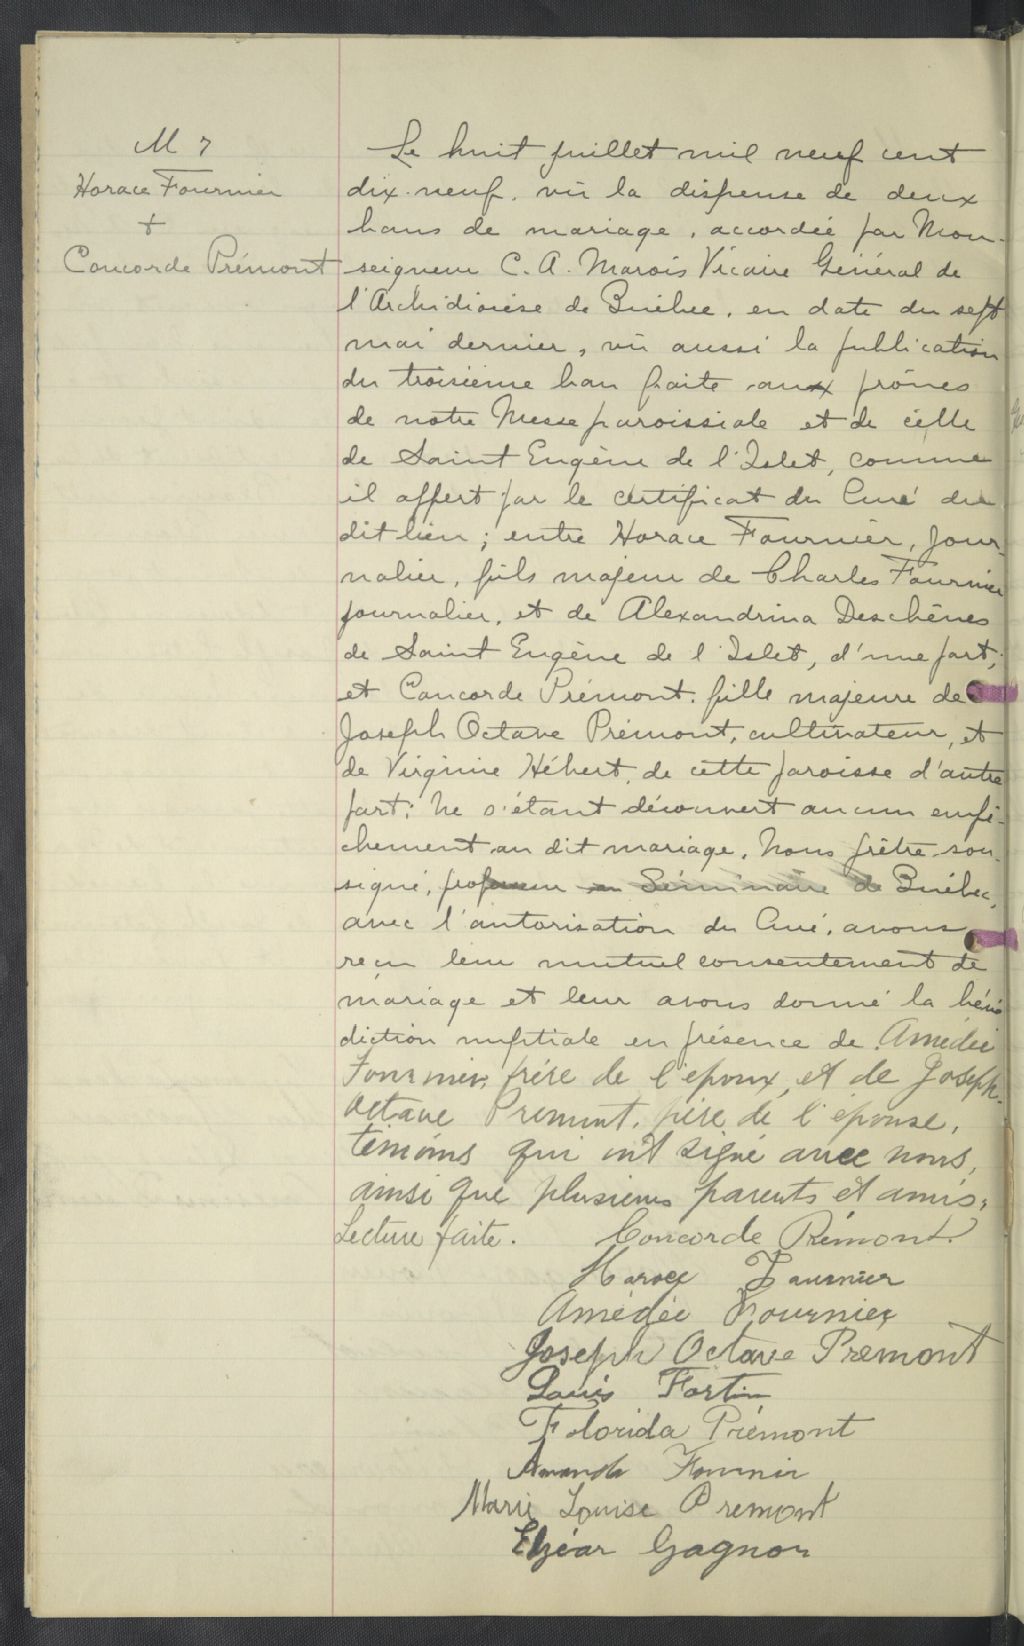 M 7
Horace Fournier
+
Concorde Prémont
Le huit juillet mil neuf cent
dix-neuf, vû la dispense de deux
bans de mariage, accordée par Mon-
seigneur C. A. Marois Vicaire Général de
l'Archidiocèse de Québec, en date du sept
mai dernier, vû aussi la publication
du troisième ban faite aux prônes
de notre Messe paroissiale et de celle
de Saint Eugène de l'Islet, comme
il appert par le certificat du Curé du
dit lieu; entre Horace Fournier, jour-
nalier, fils majeur de Charles Fournier
journalier, et de Alexandrina Deschênes
de Saint Eugène de l'Islet, d'une part;
et Concorde Prémont, fille majeure de
Joseph Octave Prémont, cultivateur, et
de Virginie Hébert, de cette paroisse d'autre
part; ne s'étant découvert aucun empê-
chement au dit mariage, Nous prêtre sou-
signé, professeur au Séminaire de Québec,
avec l'autorisation du Curé, avons
reçu leur mutuel consentement de
mariage et leur avons donné la béné
diction nuptiale en présence de Amédée
Fournier, frère de l'époux, et de Joseph-
Octave Prémont, père de l'épouse,
témoins qui ont signé avec nous,
ainsi que plusieurs parents et amis,
Lecture faite. Concorde Prémont
Horace Fournier
Amédée Fournier
Joseph Octave Premont
Louis Fortin
Florida Prémont
Amanda Fournier
Marie Louise Premont
Elzéar Gagnon